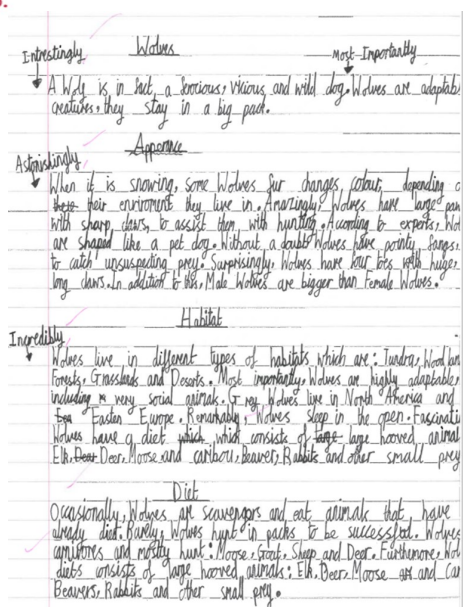 Wolves
Intrestingly Most Importantly
A Wolf is in fact, a ferocious, vicious and wild dog. Wolves are adaptable
creatures, they stay in a big pack.
Apperance
Astonishingly
When it is snowing, some Wolves fur changes colour, depending o
their enviroment they live in. Amazingly, Wolves have large paw
with sharp claws, to assist them with hunting. According to experts, Wol
are shaped like a pet dog. Without a doubt Wolves have pointy fangs,
to catch unsuspecting prey. Surprisingly, Wolves have four toes with huge,
long claws. In addition to this, Male Wolves are bigger than Female Wolves.
Habitat
Incredibly
Wolves live in different types of habitats which are: Tundra, Woodlan
Forests, Grasslands and Deserts. Most importantly, Wolves are highly adaptable,
including very social animals. Grey Wolves live in North America and
Easten Europe. Remarkably, Wolves sleep in the open. Fascinati
Wolves have a diet which which consists of large large hooved animal
Elk, Deer, Moose and caribou, Beaver, Rabbits and other small prey
Diet
Occasionally, Wolves are scavengers and eat animals that have
already died. Rarely, Wolves hunt in packs to be successful. Wolves
carnivores and mostly hunt: Moose, Goat, Sheep and Deer. Furthemore, Wol
diets consists of large hooved animals: Elk, Deer, Moose and Car
Beavers, Rabbits and other small prey.